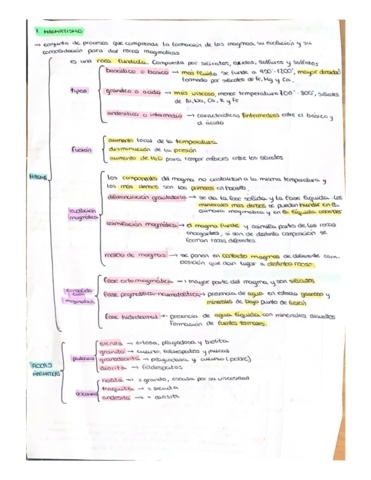 1. MAGMATISMO
→ conjunto de procesos que comprende la formación de los magmas, su evolución y su
consolidación para dar rocas magmáticas
es una roca fundida. Compuesta por silicatos, óxidos, sulfuros y sulfatos
basáltico o básico → más fluido (se funde a
formado por silicatos de Fe, Mg y Ca.
tipos
granítico o ácido → más viscoso, menor temperatura
de Na, Ca, K y Fe
andesítico o intermedio → características intermedias entre el básico y
el ácido
aumento local de la temperatura
Fusión
disminución de la presión
aumento de H2O para romper enlaces entre los silicatos
los componentes del magma no cristalizan a la misma temperatura y
los más densos son los primeros en hacerlo
diferenciación gravitatoria → se da la fase sólida y la fase líquida. Los
minerales más densos se pueden hundir en la
cámara magmática y en la líquida
evolución
magmática
asimilación magmática → el magma funde y asimila partes de las rocas
encajantes, si son de distinta composición se
forman rocas diferentes
mezcla de magmas → se ponen en contacto magmas de diferente com-
posición que dan lugar a distintas rocas.
fase ortomagmática → mayor parte del magma y son silicatos
fase pegmatítica-neumatolítica → presencia de agua en estado gaseoso y
minerales de bajo punto de fusión
magmática
fase hidrotermal → presencia de agua líquida con minerales disueltos
Formación de fuentes termales.
sienita → ortosa, plagioclasa y biotita
granito → cuarzo, feldespatos y micas
granodiorita → plagioclasa y cuarzo (poco)
diorita → feldespatos
ROCAS
riolita → = granito, escasa por su viscosidad
traquita → = sienita
andesita → = diorita